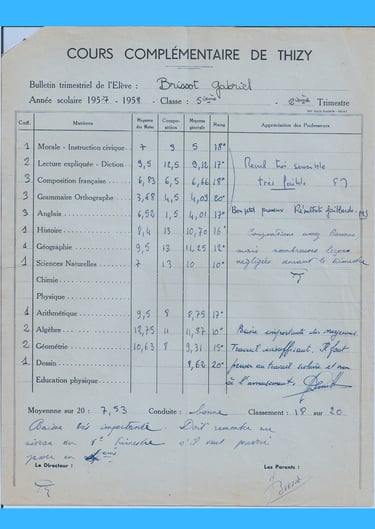 COURS COMPLÉMENTAIRE DE THIZY
Bulletin trimestriel de l'Elève : Brissot Gabriel
Année scolaire 1957 - 1958 - Classe : 5ième - 2ième Trimestre
Coef. Matières Moyenne des Notes Compo-sition Moyenne générale Rang Appréciation des Professeurs
1 Morale - Instruction civique 7 9 5 18e
2 Lecture expliquée - Diction 9,5 12,5 9,12 17e Recul très sensible
3 Composition française 6,83 6,5 6,66 18e très faible
3 Grammaire Orthographe 3,48 4,5 4,09 20e
3 Anglais 6,52 1,5 4,01 17e Résultat
1 Histoire 8,4 13 10,70 16e Compositions assez bonnes
1 Géographie 9,5 13 11,25 12e mais nombreuses leçons
1 Sciences Naturelles 7 13 10 10e négligées durant le trimestre
Chimie
Physique
1 Arithmétique 9,5 8 8,75 17e
2 Algèbre 12,75 11 11,87 10e Baisse importante des moyennes.
2 Géométrie 10,63 8 9,31 15e Travail insuffisant. Il faut
1 Dessin 8,62 20e penser au travail scolaire et non
Education physique à l'amusement.
Moyenne sur 20 : 7,53 Conduite : bonne Classement : 18 sur 20
Baisse très importante. Doit remonter au
niveau du 1er trimestre s'il veut pouvoir
passer en
Le Directeur : Les Parents :